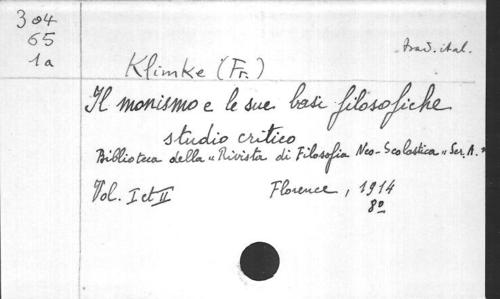 304
65
1a
trad. ital.
Klimke (Fr.)
Il monismo e le sue basi filosofiche
studio critico
Biblioteca della "Rivista di Filosofia Neo-Scolastica" Ser. A.
Vol. I et II
Florence, 1914
8º